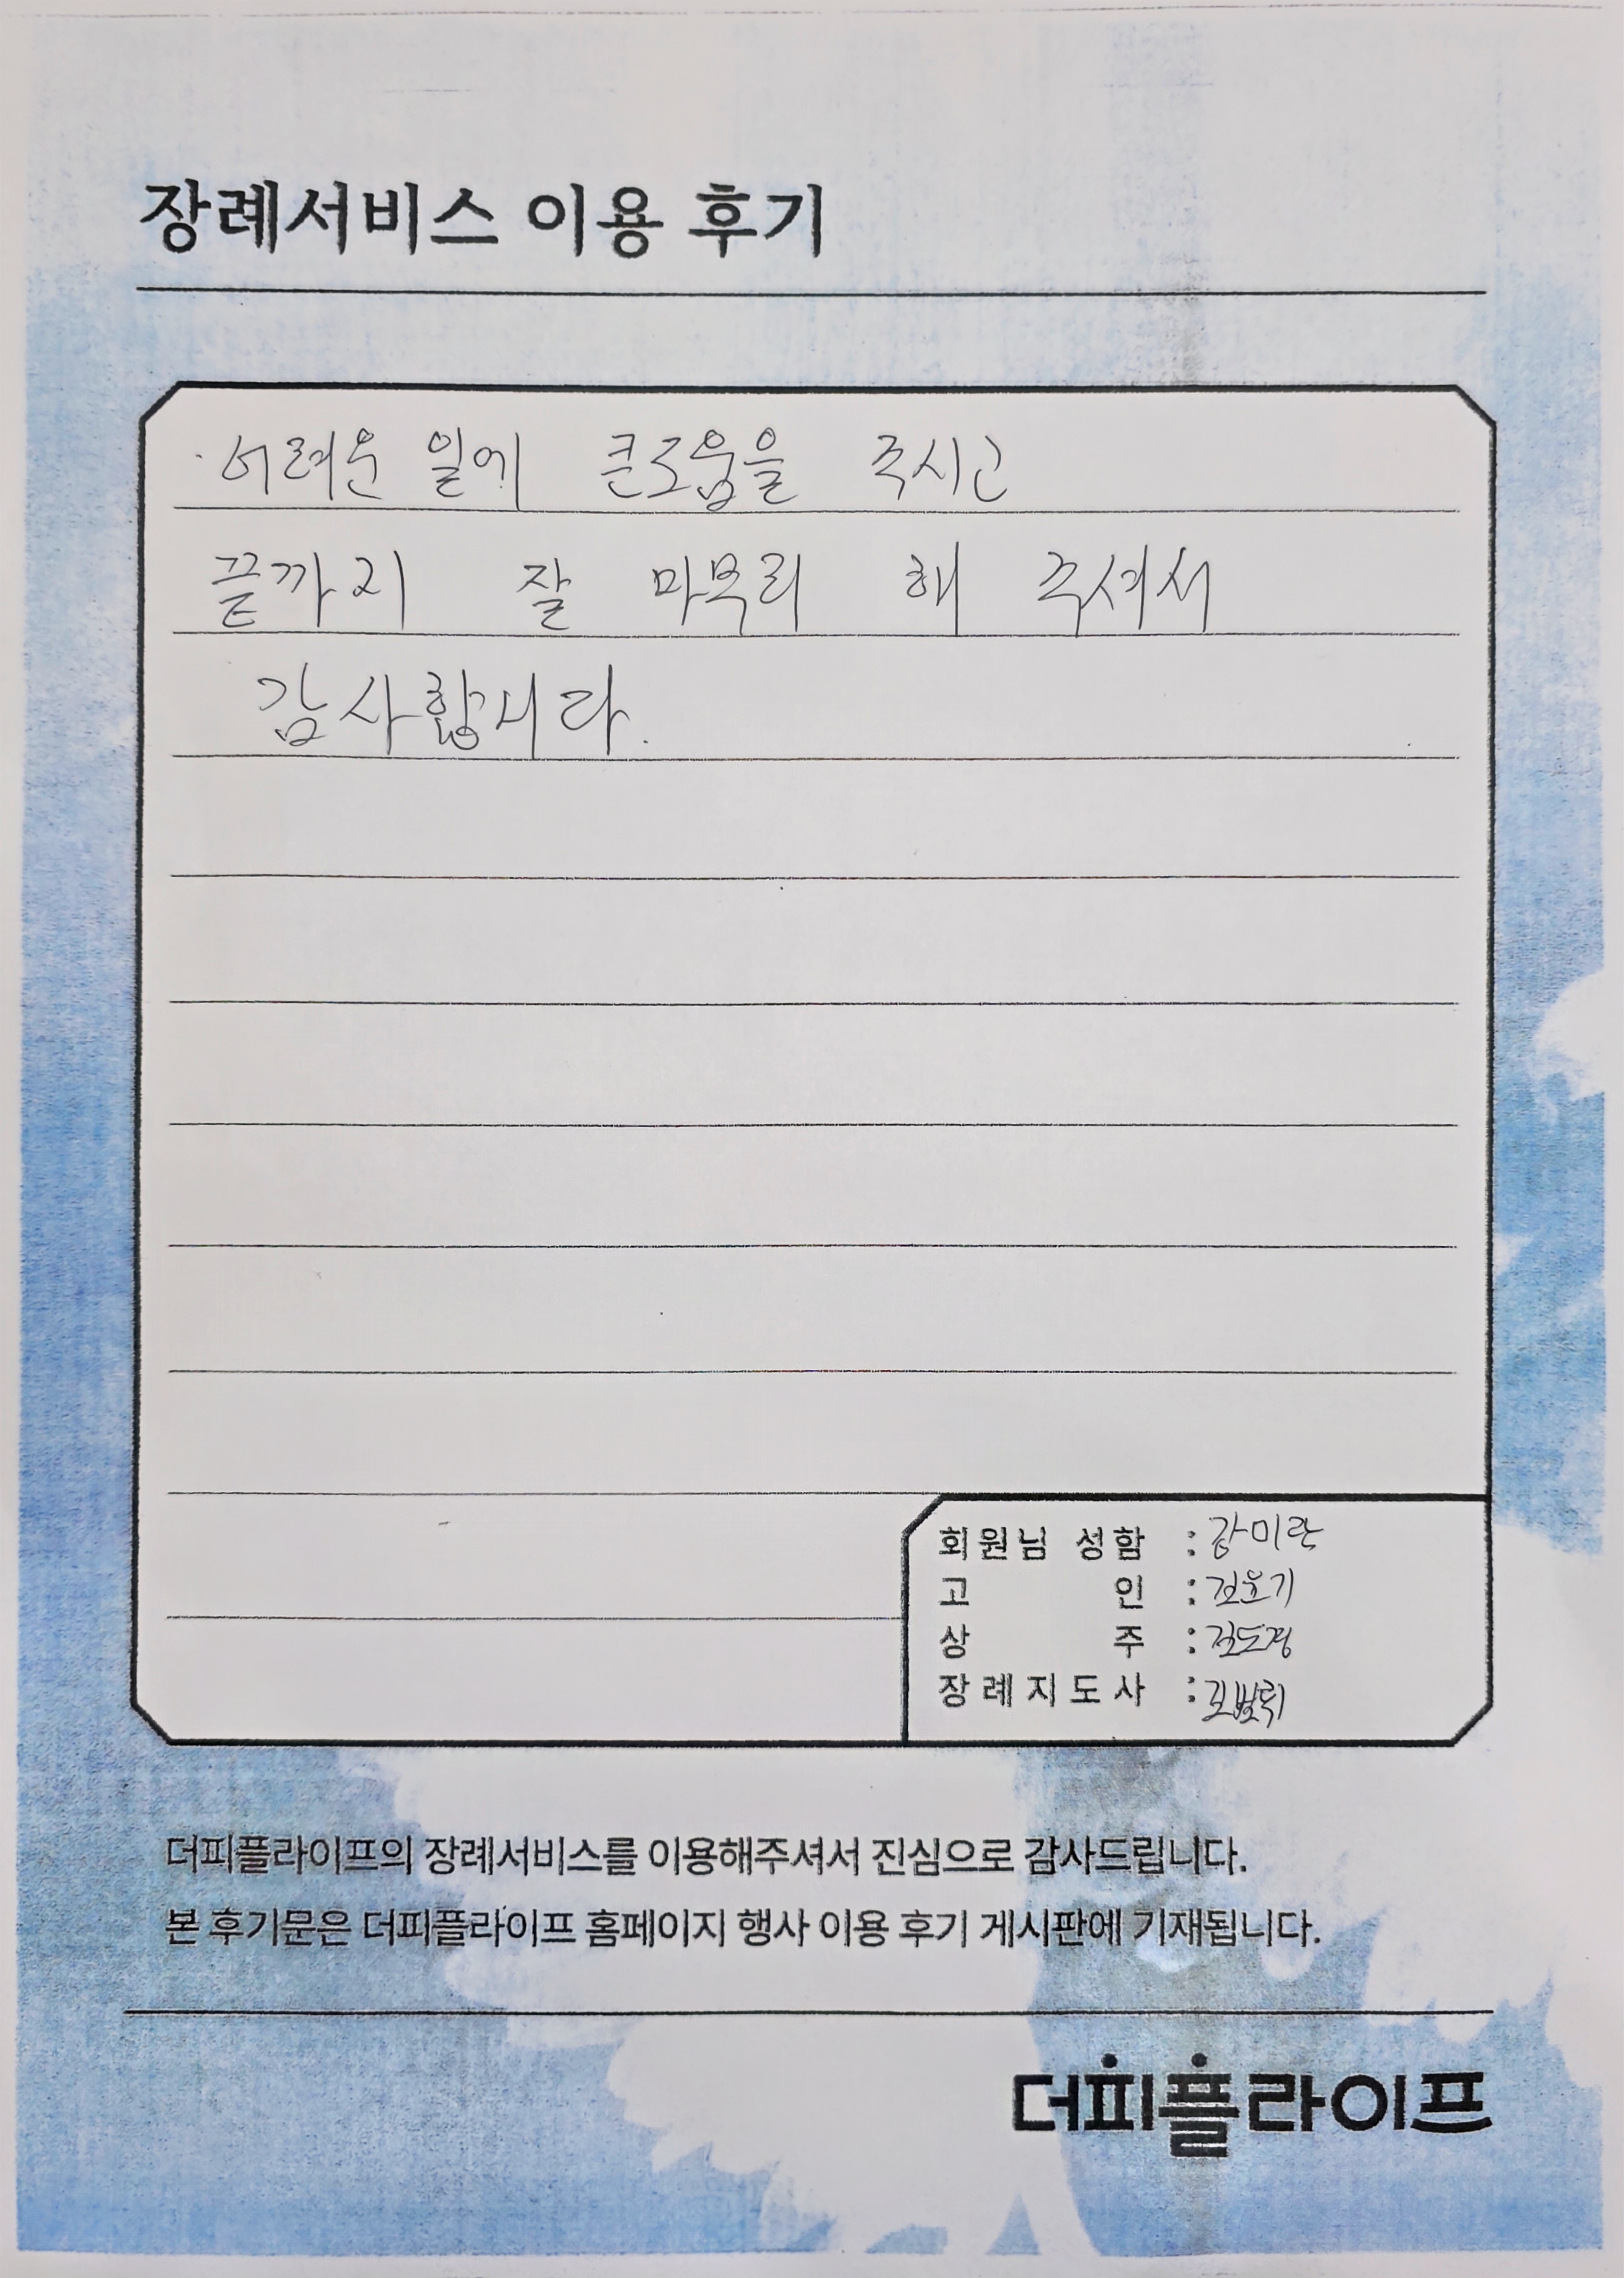 장례서비스 이용 후기
어려운 일에 큰도움을 주시고
끝까지 잘 마무리 해 주셔서
감사합니다.
회원님 성함 : 강미란
고 인 : 전윤기
상 주 : 전도경
장례지도사 :
더피플라이프의 장례서비스를 이용해주셔서 진심으로 감사드립니다.
본 후기문은 더피플라이프 홈페이지 행사 이용 후기 게시판에 기재됩니다.
더피플라이프